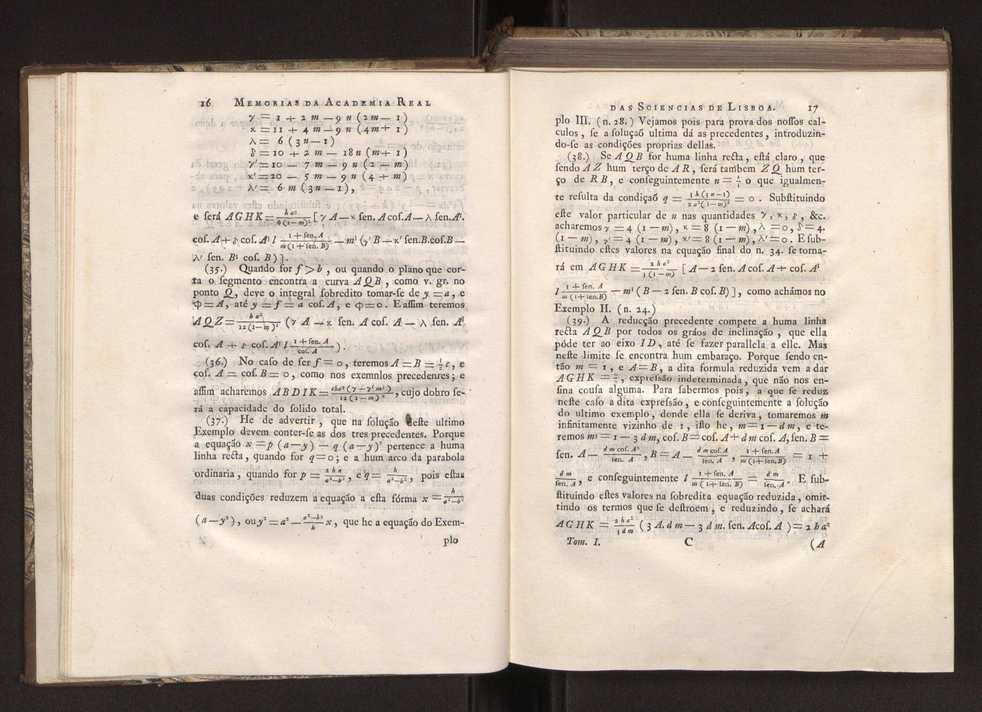 16 MEMORIAS DA ACADEMIA REAL
γ = 1 + 2 m — 9 n (2m — 1)
κ = 11 + 4 m — 9 n (4m + 1)
λ = 6 (3n — 1)
δ = 10 + 2 m — 18n (m + 1)
γ' = 10 — 7 m — 9 n (2 — m)
κ' = 20 — 5 m — 9 n (4 + m)
λ' = 6 m (3n — 1),
e ſerá AGHK =
[ γ A — κ ſen. A coſ. A — λ ſen. A³.
coſ. A + δ coſ. A³ l (1 + ſen. A)/(m(1 + ſen. B)) — m³ (γ' B — κ' ſen. B. coſ. B —
λ' ſen. B³ coſ. B) ].
(35.) Quando for f > b , ou quando o plano que cor-
ta o ſegmento encontra a curva AQB , como v. gr. no
ponto Q, deve o integral ſobredito tomar-ſe de y = a, e
Φ = A, até y = f = a coſ. A, e Φ = 0. E aſſim teremos
AQZ =
(γ A — κ ſen. A coſ. A — λ ſen. A³
coſ. A + δ coſ. A³ l (1 + ſen. A)/(coſ. A) ).
(36.) No caſo de ſer f = 0, teremos A = B = ½ c, e
coſ. A = coſ. B = 0, como nos exemplos precedentes; e
aſſim acharemos ABDIK =
, cujo dobro ſe-
rá a capacidade do ſolido total.
(37.) He de advertir , que na ſolução deſte ultimo
Exemplo devem conter-ſe as dos tres precedentes. Porque
a equação x = p (a — y) — q (a — y)² pertence a huma
linha recta, quando for q = 0; e a hum arco da parabola
ordinaria , quando for p = 2ha/(a² — b²), e q = h/(a² — b²), pois eſtas
duas condições reduzem a equação a eſta fórma x = h/(a² — b²)
(a — y²), ou y² = a² — (a² — b²)/h x, que he a equação do Exem-
plo
DAS SCIENCIAS DE LISBOA. 17
plo III. (n. 28.) Vejamos pois para prova dos noſſos cal-
culos , ſe a ſoluçaõ ultima dá as precedentes , introduzin-
do-ſe as condições proprias dellas.
(38.) Se AQB for huma linha recta, eſtá claro , que
ſendo AZ hum terço de AR, ſerá tambem ZQ hum ter-
ço de RB, e conſeguintemente n = ⅓ o que igualmen-
te reſulta da condiçaõ q =
= 0. Subſtituindo
eſte valor particular de n nas quantidades γ, κ, δ, &c.
acharemos γ = 4 (1 — m), κ = 8 (1 — m), λ = 0, δ = 4.
(1 — m), γ' = 4 (1 — m), κ' = 8 (1 — m), λ' = 0. E ſub-
ſtituindo eſtes valores na equação final do n. 34. ſe torna-
rá em AGHK = 2ha²/(3(1—m)) [ A — 2 ſen. A coſ. A + coſ. A³
l (1 + ſen. A)/(m (1 + ſen. B)) — m³ (B — 2 ſen. B coſ. B) ], como achámos no
Exemplo II. (n. 24.)
(39.) A reducção precedente compete a huma linha
recta AQB por todos os gráos de inclinação , que ella
póde ter ao eixo ID, até ſe fazer parallela a elle. Mas
neſte limite ſe encontra hum embaraço. Porque ſendo en-
tão m = 1, e A = B, a dita formula reduzida vem a dar
AGHK = 0/0, expreſsão indeterminada, que não nos en-
ſina couſa alguma. Para ſabermos pois, a que ſe reduz
neſte caſo a dita expreſsão, e conſeguintemente a ſolução
do ultimo exemplo, donde ella ſe deriva, tomaremos m
infinitamente vizinho de 1, iſto he, m = 1 — dm, e te-
remos m³ = 1 — 3 dm, coſ. B = coſ. A + dm coſ. A, ſen. B =
ſen. A — (dm coſ. A²)/(ſen. A), B = A — (dm coſ. A)/(ſen. A), (1 + ſen. A)/(m(1+ſen. B)) = 1 +
dm/(ſen. A), e conſeguintemente l (1 + ſen. A)/(m (1+ſen. B)) = dm/(ſen. A). E ſub-
ſtituindo eſtes valores na ſobredita equação reduzida, omit-
tindo os termos que ſe deſtroem, e reduzindo, ſe achará
AGHK = 2ha²/(3dm) (3 A. dm — 3 dm. ſen. A coſ. A ) = 2 ha²
Tom. I. C (A